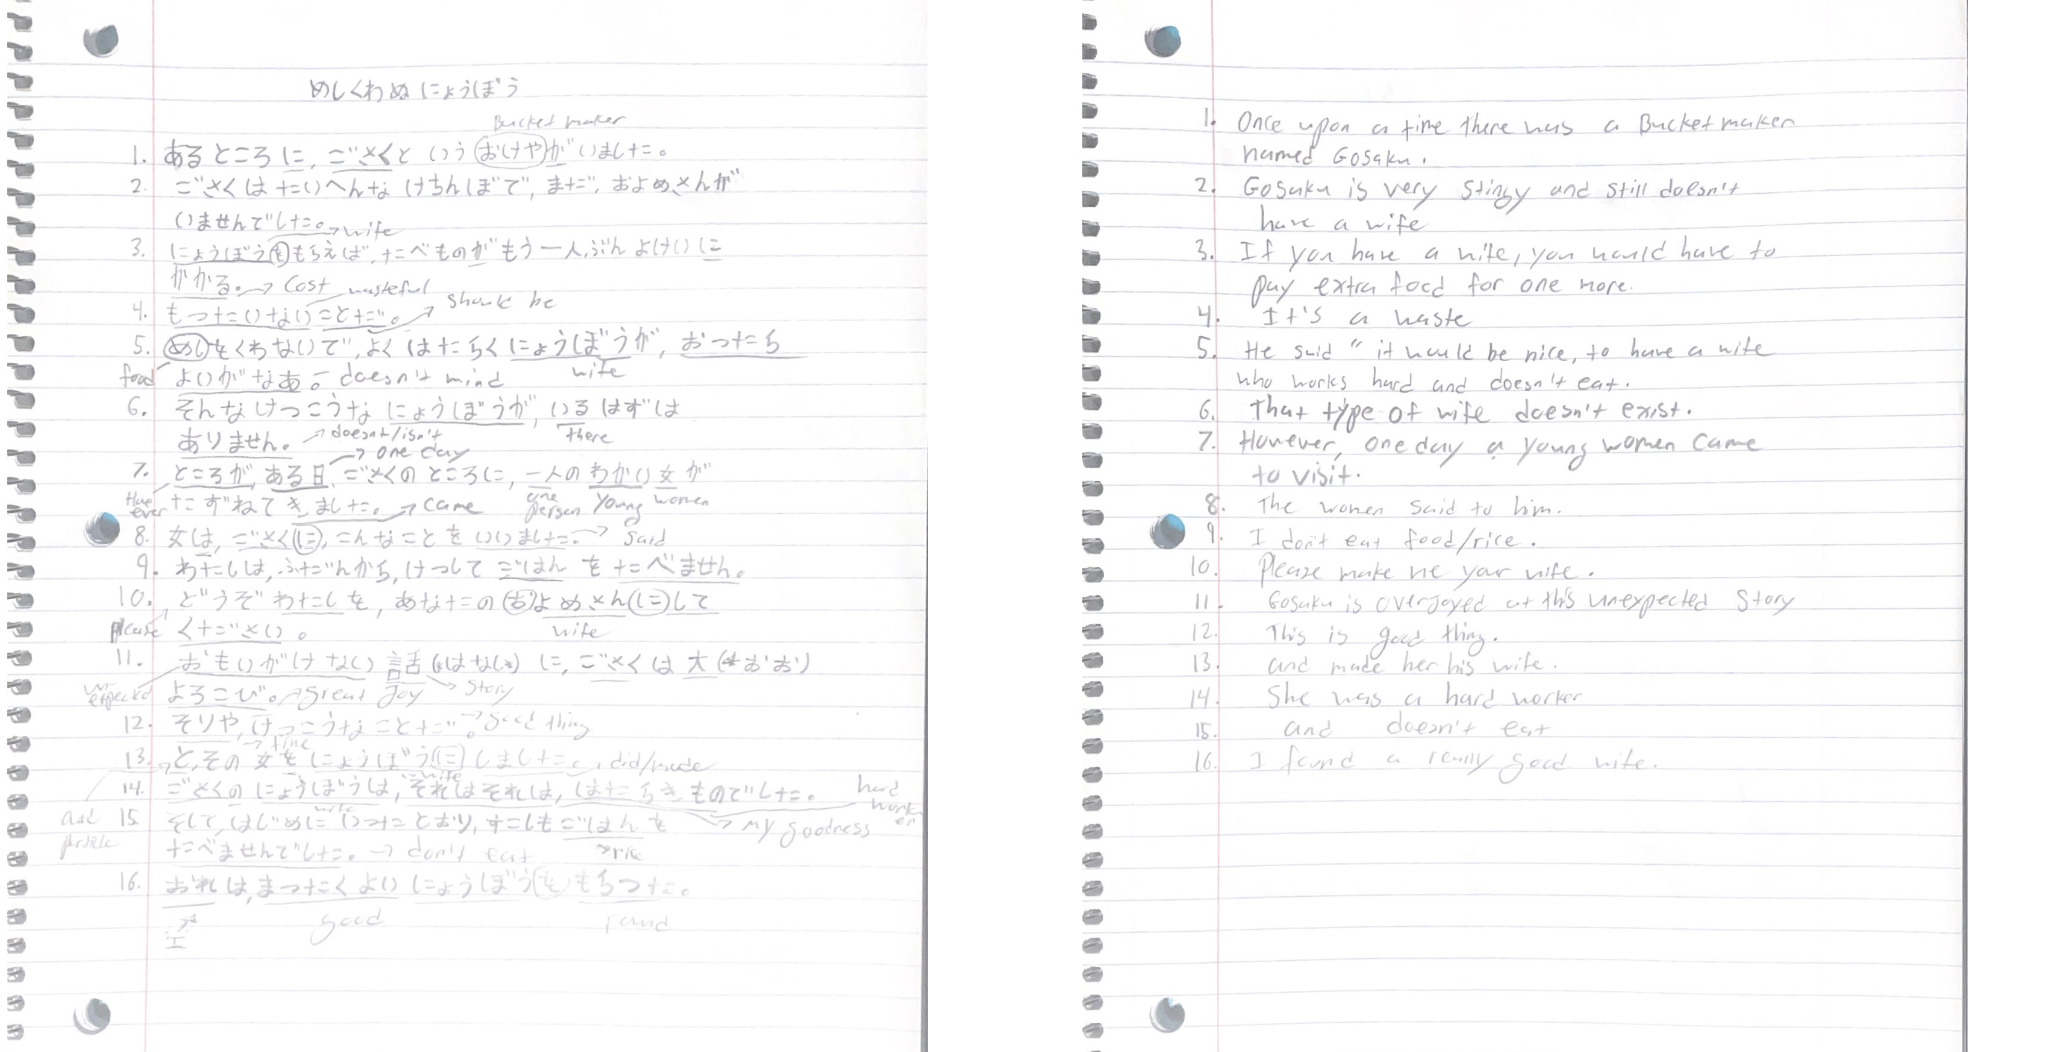 めしくわぬ にょうぼう
Bucket maker
1. あるところに, ごさくと いう おけやが いました。
2. ごさくは たいへんな けちんぼで, まだ, およめさんが
いませんでした。→ wife
3. にょうぼうをもらえば, たべものが もう 一人ぶん よけいに
かかる。→ Cost wasteful
should be
4. もったいない ことだ。
5. めしをくわないで, よく はたらく にょうぼうが, おったら
food よいがなあ。 doesn't mind wife
6. そんな けっこうな にょうぼうが, いる はずは
ありません。→ doesn't/isn't there
→ one day
7. ところが, ある日, ごさくの ところに, 一人の わかい 女が
However たずねて きました。→ came one person young women
8. 女は, ごさくに, こんなことを いいました。→ said
9. わたしは, ふだんから, けっして ごはん を たべません。
10. どうぞ わたしを, あなたの およめさんに して
please ください。 wife
11. おもいがけない 話 (はなし) に, ごさくは 大 (おお)
unexpected よろこび。→ great joy → story
12. そりゃ, けっこうな ことだ。→ good thing
→ fine
13. と, その 女を にょうぼうに しました。 did/made
wife
14. ごさくの にょうぼうは, それはそれは, はたらき ものでした。 hard worker
wife
and particle
15 そして, はじめに いった とおり, すこしも ごはん を → my goodness
たべませんでした。→ don't eat → rice
16. おれは, まったく よい にょうぼうを もらった。
I good found
1. Once upon a time there was a Bucket maker
named Gosaku.
2. Gosaku is very stingy and still doesn't
have a wife
3. If you have a wife, you would have to
pay extra food for one more.
4. It's a waste
5. He said " it would be nice, to have a wife
who works hard and doesn't eat.
6. That type of wife doesn't exist.
7. However, one day a young women came
to visit.
8. The women said to him.
9. I don't eat food/rice.
10. Please make me your wife.
11. Gosaku is overjoyed at this unexpected story
12. This is good thing.
13. and made her his wife.
14. She was a hard worker
15. and doesn't eat
16. I found a really good wife.